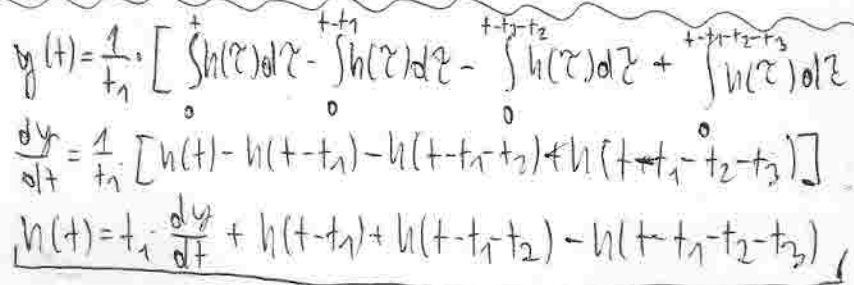 y(t) = 1/t₁ · [ ∫₀ᵗ h(τ)dτ - ∫₀ᵗ⁻ᵗ¹ h(τ)dτ - ∫₀ᵗ⁻ᵗ¹⁻ᵗ² h(τ)dτ + ∫₀ᵗ⁻ᵗ¹⁻ᵗ²⁻ᵗ³ h(τ)dτ
dy/dt = 1/t₁ [h(t) - h(t-t₁) - h(t-t₁-t₂) + h(t-t₁-t₂-t₃)]
h(t) = t₁ · dy/dt + h(t-t₁) + h(t-t₁-t₂) - h(t-t₁-t₂-t₃)